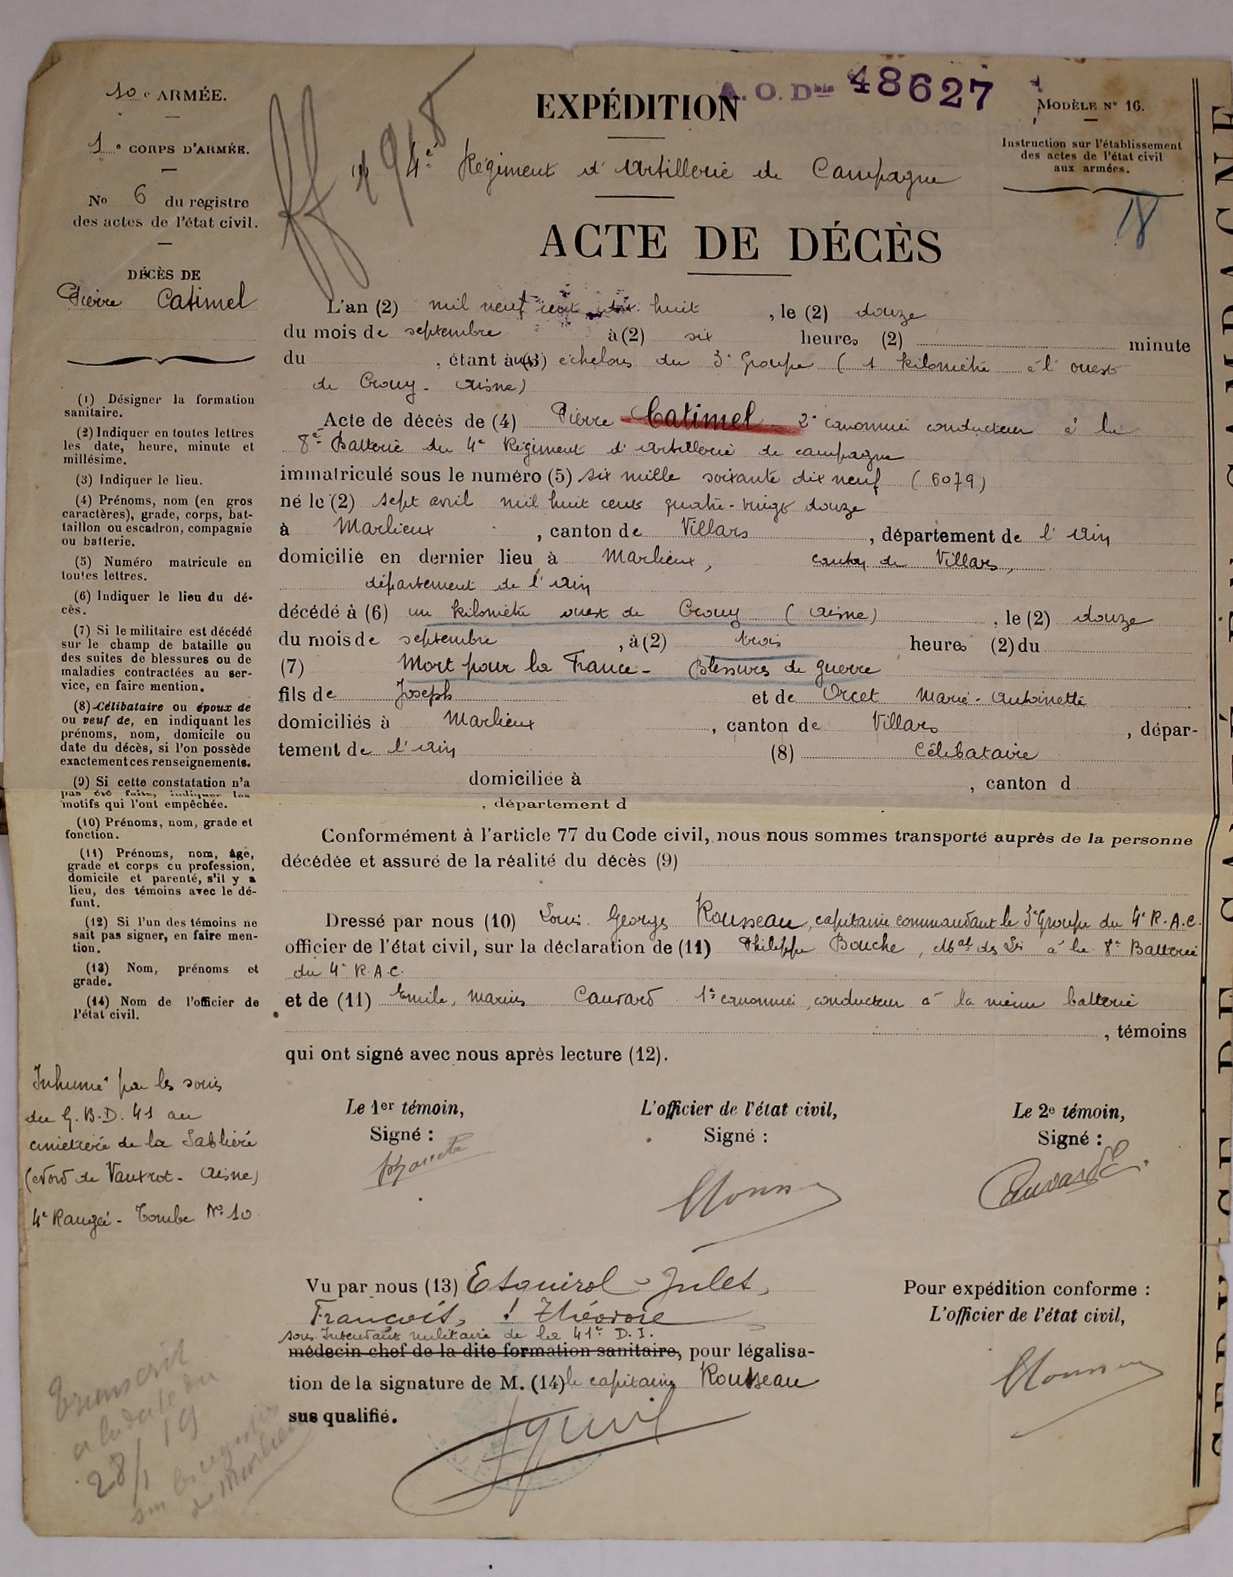 10e ARMÉE.
1e CORPS D'ARMÉE.
No 6 du registre
des actes de l'état civil.
DÉCÈS DE
Pierre Catimel
(1) Désigner la formation
sanitaire.
(2) Indiquer en toutes lettres
les date, heure, minute et
millésime.
(3) Indiquer le lieu.
(4) Prénoms, nom (en gros
caractères), grade, corps, bat-
taillon ou escadron, compagnie
ou batterie.
(5) Numéro matricule en
toutes lettres.
(6) Indiquer le lieu du dé-
cès.
(7) Si le militaire est décédé
sur le champ de bataille ou
des suites de blessures ou de
maladies contractées au ser-
vice, en faire mention.
(8) Célibataire ou époux de
ou veuf de, en indiquant les
prénoms, nom, domicile ou
date du décès, si l'on possède
exactement ces renseignements.
(9) Si cette constatation n'a
pas été faite, indiquer les
motifs qui l'ont empêchée.
(10) Prénoms, nom, grade et
fonction.
(11) Prénoms, nom, âge,
grade et corps ou profession,
domicile et parenté, s'il y a
lieu, des témoins avec le dé-
funt.
(12) Si l'un des témoins ne
sait pas signer, en faire men-
tion.
(13) Nom, prénoms et
grade.
(14) Nom de l'officier de
l'état civil.
Inhumé par les soins
du G.B.D. 41 au
cimetière de la Sablière
(Nord de Vauxrot - Aisne)
4e Rangée - Tombe No 10
Transcrit
à la date du
28/1 19
sur les registres
de Marlieux
A. O. Dble 48627
EXPÉDITION
4e Régiment d'Artillerie de Campagne
MODÈLE N° 16.
Instruction sur l'établissement
des actes de l'état civil
aux armées.
18
ACTE DE DÉCÈS
L'an (2) mil neuf cent dix huit, le (2) douze
du mois de septembre à (2) six heures (2) minute
du , étant à (3) échelons du 3e Groupe (1 kilomètre à l'ouest
de Crouy - Aisne)
Acte de décès de (4) Pierre Catimel 2e canonnier conducteur à la
8e Batterie du 4e Régiment d'Artillerie de campagne
immatriculé sous le numéro (5) six mille soixante dix neuf (6079)
né le (2) sept avril mil huit cents quatre-vingt douze
à Marlieux, canton de Villars, département de l'Ain
domicilié en dernier lieu à Marlieux, canton de Villars,
département de l'Ain
décédé à (6) un kilomètre ouest de Crouy (Aisne), le (2) douze
du mois de septembre, à (2) trois heures (2) du
(7) Mort pour la France - Blessures de guerre
fils de Joseph et de Orcet Marie-Antoinette
domiciliés à Marlieux, canton de Villars, dépar-
tement de l'Ain (8) Célibataire
domiciliée à , canton d
, département d
Conformément à l'article 77 du Code civil, nous nous sommes transporté auprès de la personne
décédée et assuré de la réalité du décès (9)
Dressé par nous (10) Louis Georges Rousseau, capitaine commandant le 3e Groupe du 4e R.A.C.
officier de l'état civil, sur la déclaration de (11) Philippe Bouche, Mal des Lis à la 8e Batterie
du 4e R.A.C.
et de (11) Emile, Marius Cauvard 1er canonnier conducteur à la même batterie
, témoins
qui ont signé avec nous après lecture (12).
Le 1er témoin,
Signé :
Bouche
L'officier de l'état civil,
Signé :
Le 2e témoin,
Signé :
Cauvard E
Vu par nous (13) Esquirol - Jules,
François, Théodore
sous Intendant militaire de la 41e D.I.
médecin chef de la dite formation sanitaire, pour légalisa-
tion de la signature de M. (14) le capitaine Rousseau
sus qualifié.
Pour expédition conforme :
L'officier de l'état civil,